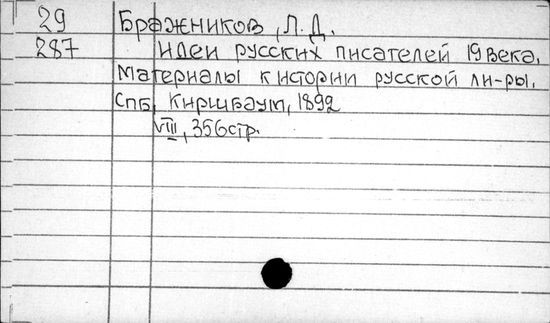 29 Бражников, Л. Д.
287 Идеи русских писателей 19 века.
Материалы к истории русской ли-ры.
Спб, Киршбаум, 1892
VIII, 356 стр.